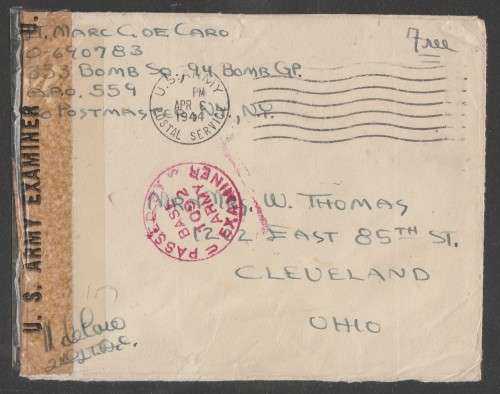 MARC C. DE CARO
O-690783
333 BOMB SQ. 94 BOMB GP.
A.P.O. 559
POSTMASTER, N.Y., N.Y.
Free
U.S. ARMY
PM
APR 6
1944
POSTAL SERVICE
PASSED BY
BASE
ARMY
EXAMINER
W. THOMAS
EAST 85TH ST.
CLEVELAND
OHIO
U. S. ARMY EXAMINER
de Caro